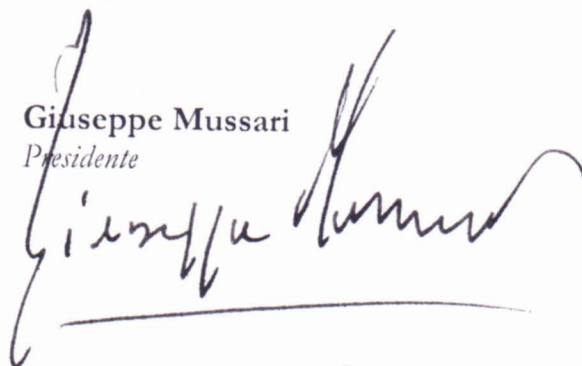 Giuseppe Mussari
Presidente
Giuseppe Mussari